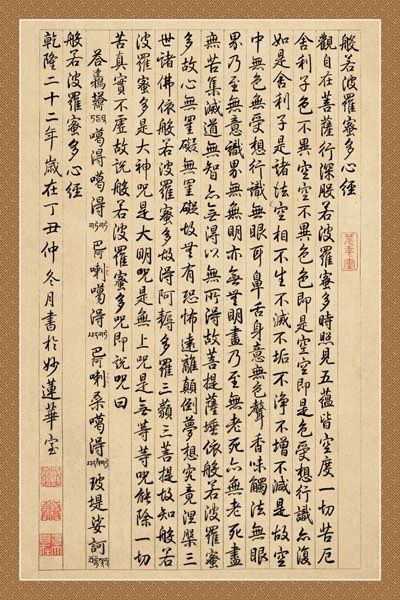 般若波羅蜜多心經
觀自在菩薩行深般若波羅蜜多時照見五蘊皆空度一切苦厄
舍利子色不異空空不異色色即是空空即是色受想行識亦復
如是舍利子是諸法空相不生不滅不垢不淨不增不減是故空
中無色無受想行識無眼耳鼻舌身意無色聲香味觸法無眼
界乃至無意識界無無明亦無無明盡乃至無老死亦無老死盡
無苦集滅道無智亦無得以無所得故菩提薩埵依般若波羅蜜
多故心無罣礙無罣礙故無有恐怖遠離顛倒夢想究竟涅槃三
世諸佛依般若波羅蜜多故得阿耨多羅三藐三菩提故知般若
波羅蜜多是大神呪是大明呪是無上呪是無等等呪能除一切
苦真實不虛故說般若波羅蜜多呪即說呪曰
噶得噶得喇噶得喇桑噶得玻提娑訶
般若波羅蜜多心經
乾隆二十二年歲在丁丑仲冬月書於妙蓮華室